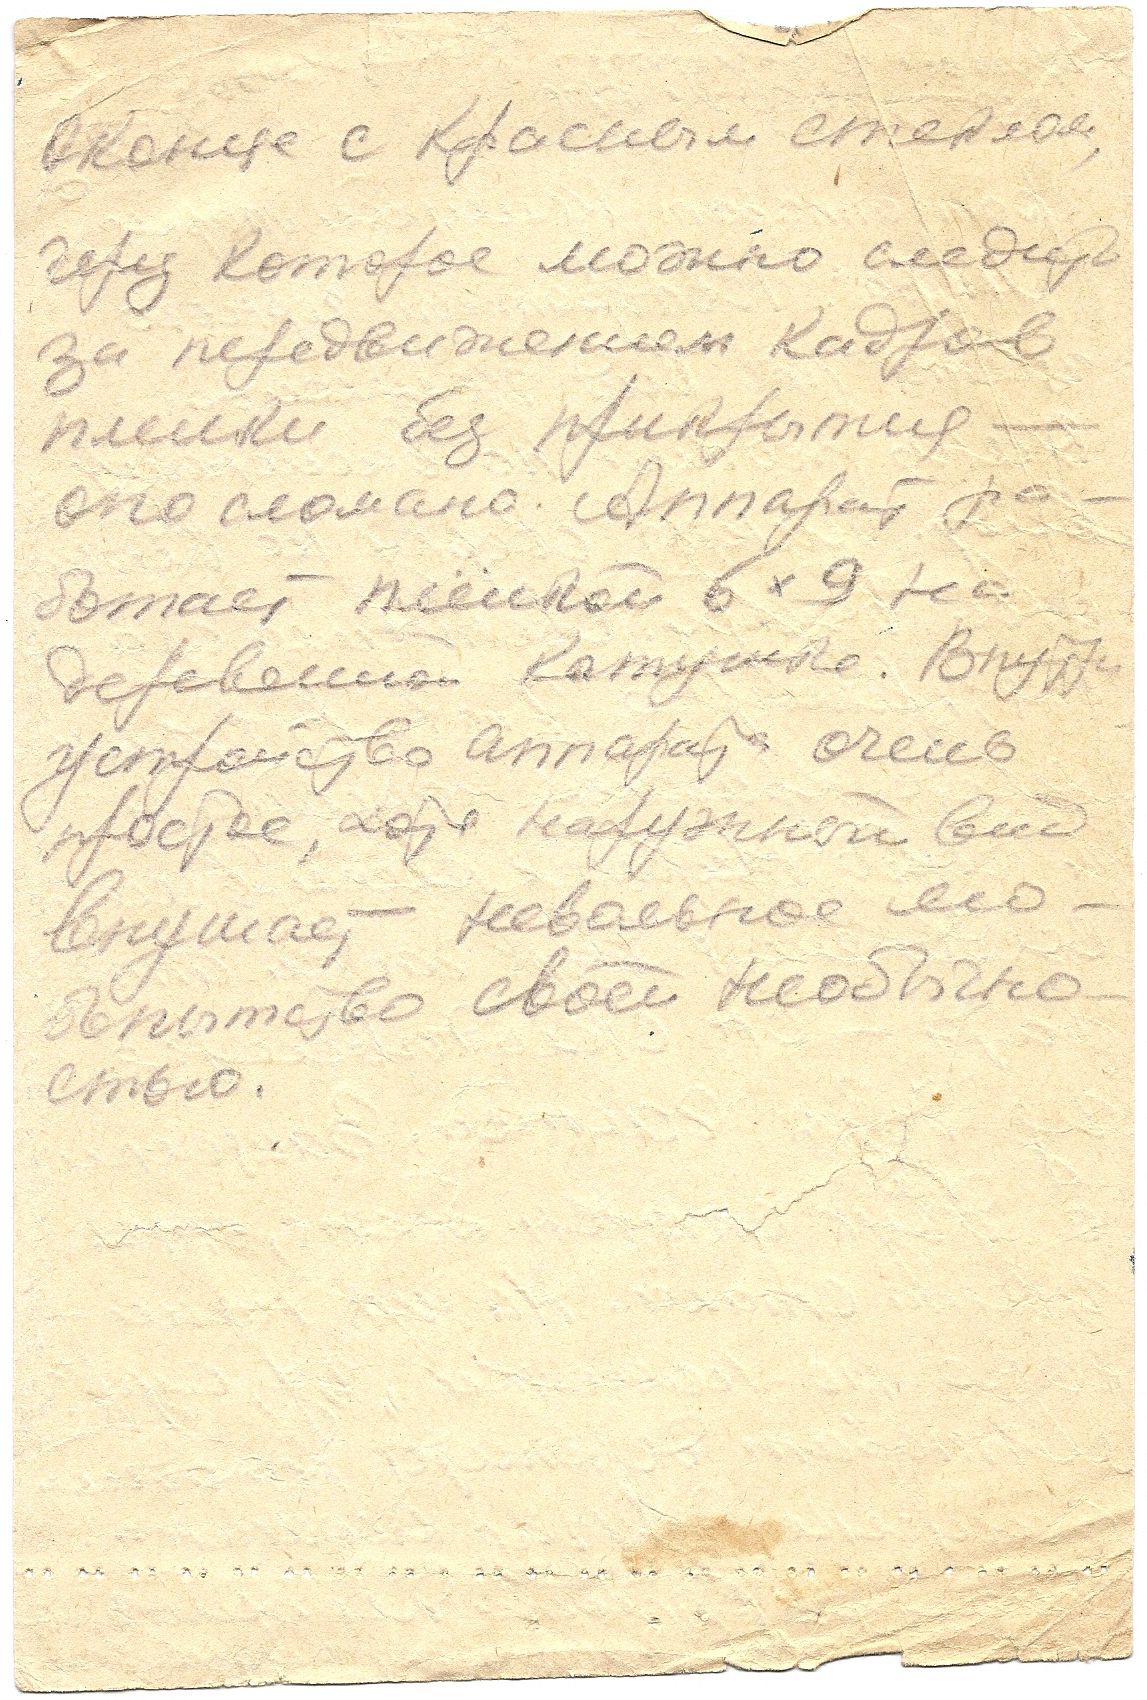 оконце с красным стеклом,
через которое можно следить
за передвижением кадров
пленки без прикрытия —
оно сломано. Аппарат ра-
ботает плёнкой 6 × 9 на
деревенной катушке. Внутри
устройство аппарата очень
простое, хотя наружной вид
внушает невольное лю-
бопытство своей необычно-
стью.